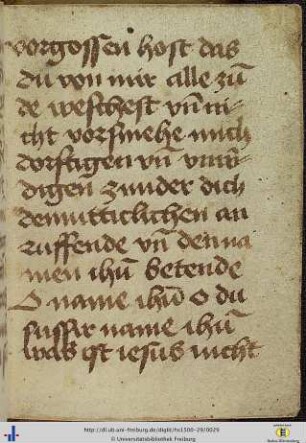 vorgossen host das
du von mir alle zu᷑
de weschest vn̄ ni-
cht vorsmehe mich
dorftigen vn̄ vnwi᷑
digen zunder dich
demutticlichen an
ruffende vn̄ denna
men ihū betende
O name ihū o du
susser name ihū
was ist iesus nicht
http://dl.ub.uni-freiburg.de/diglit/hs1500-29/0029
© Universitätsbibliothek Freiburg